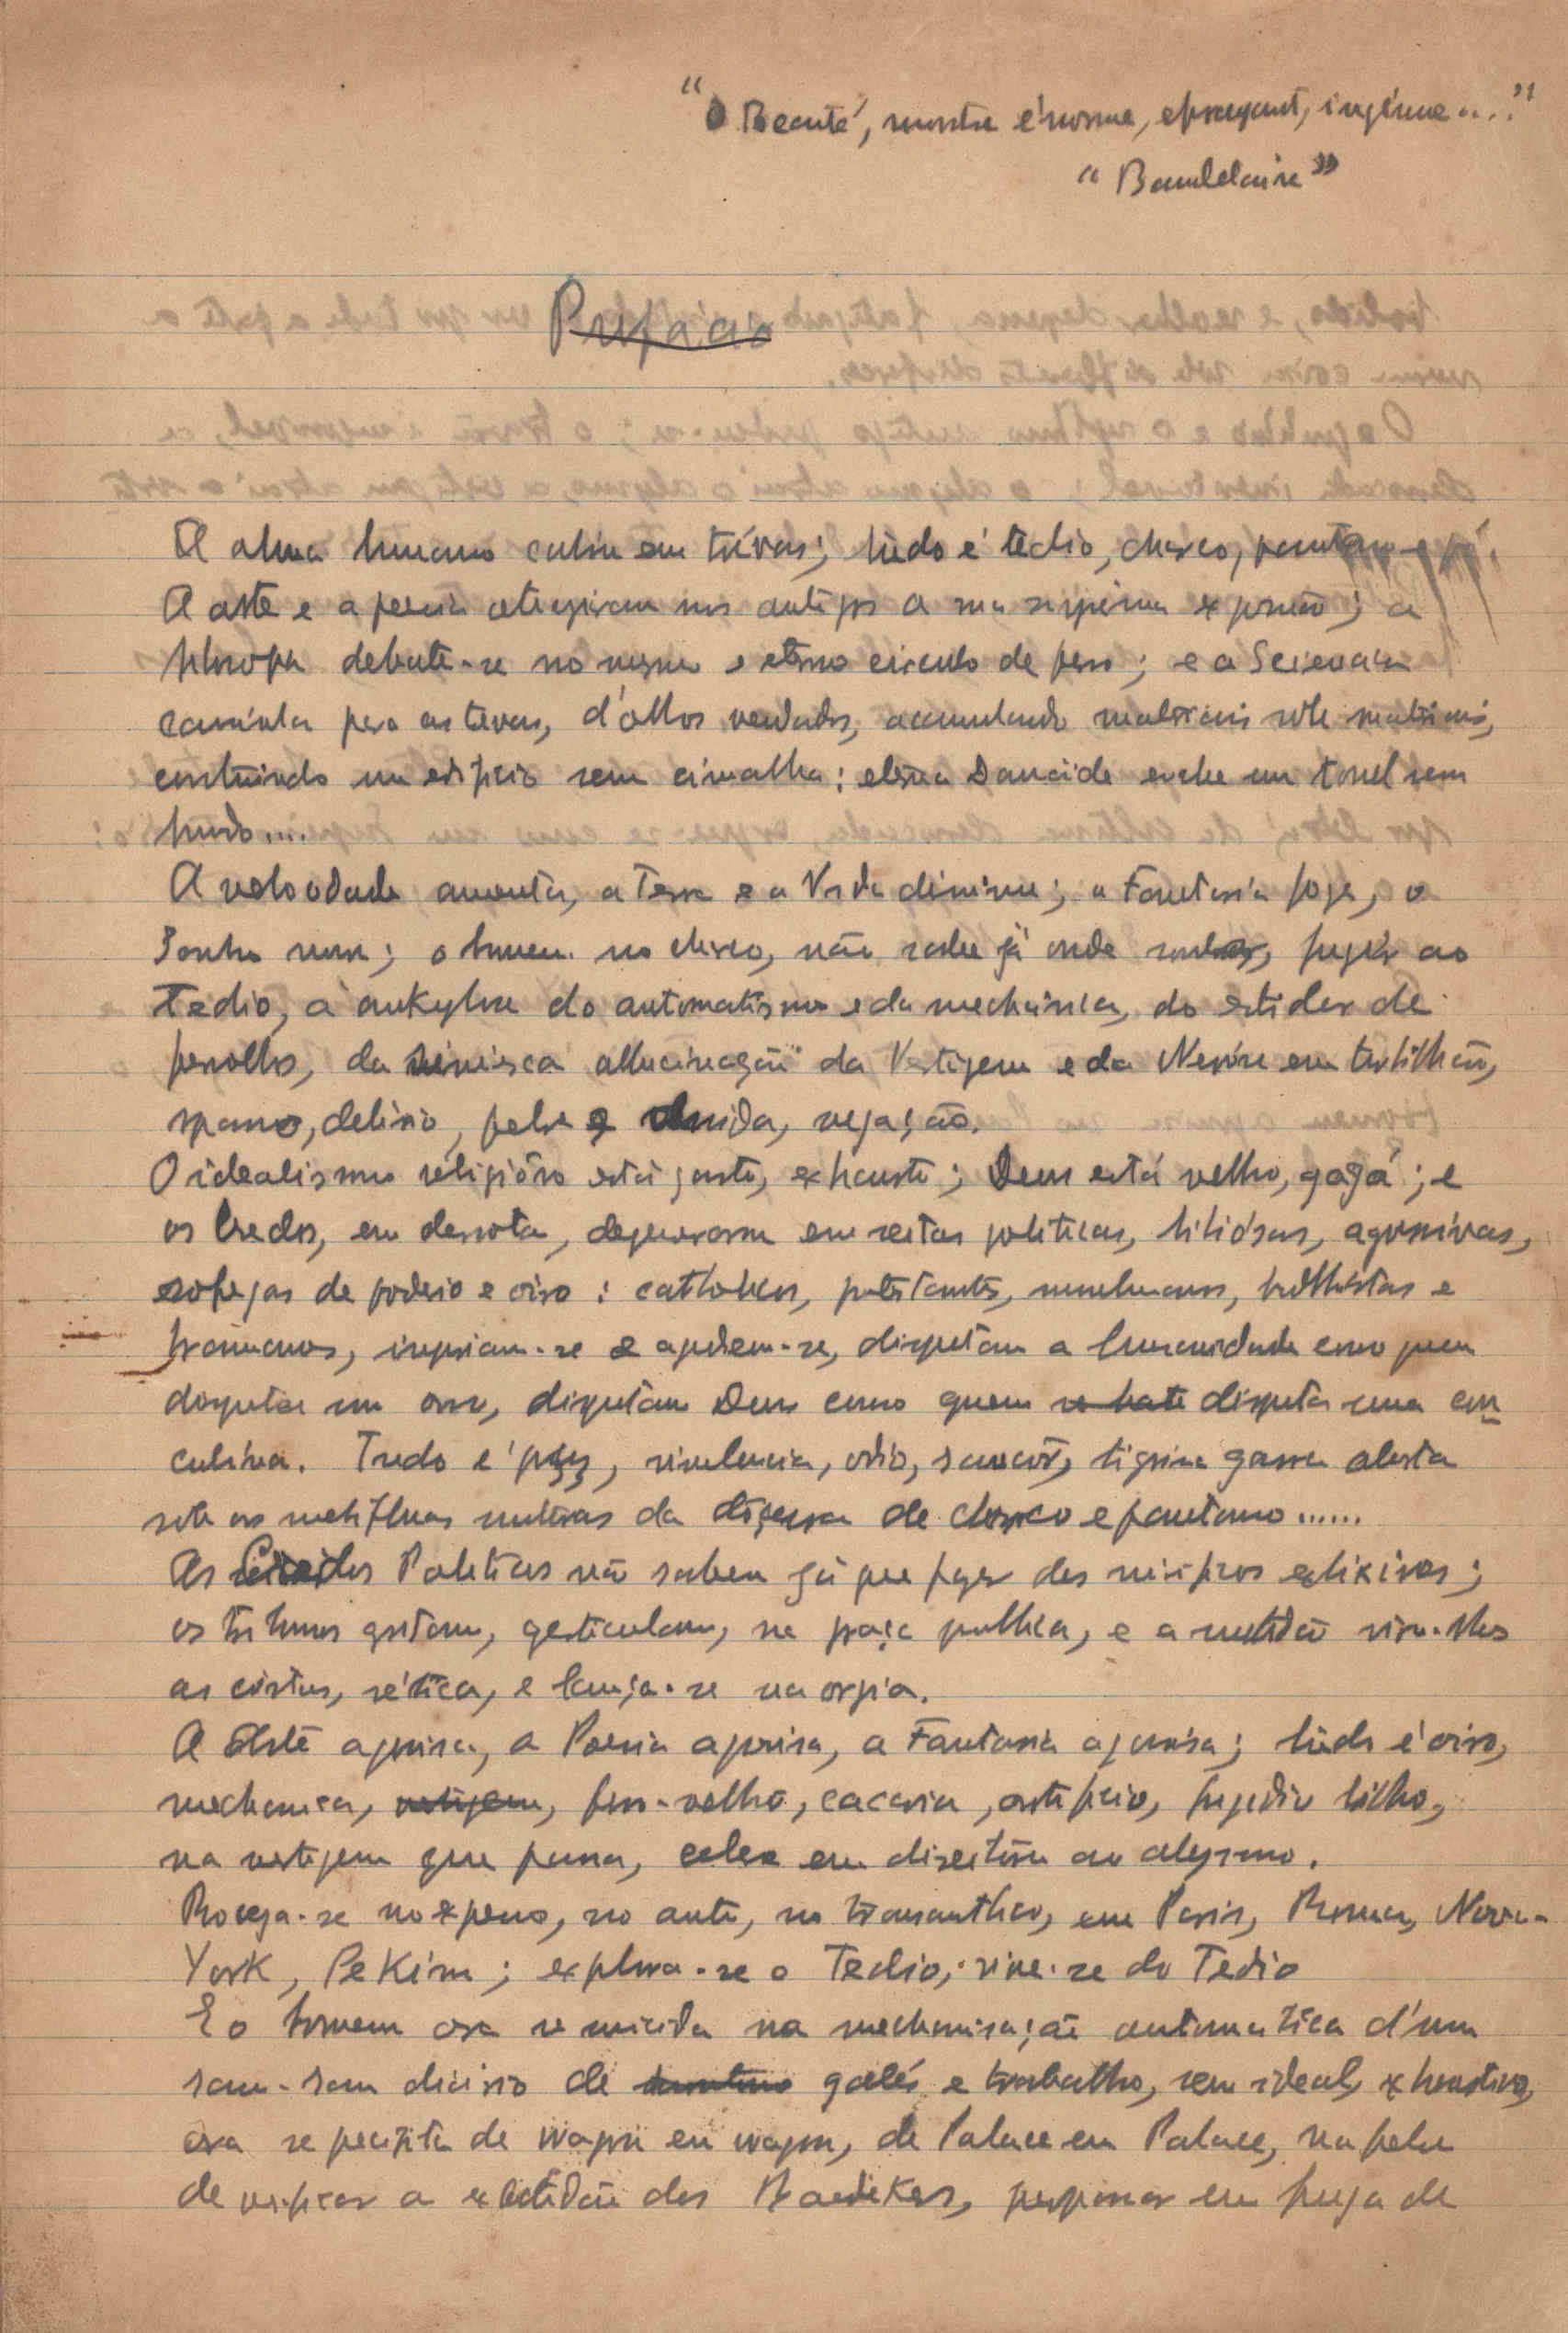 "O Beauté, monstre énorme, effrayant, ingénue...."
"Baudelaire"
Prefacio
A alma humana cahiu em trévas; tudo é tédio, charco, pantano e pó.
A arte e a poesia attingiram nos antigos a sua suprema expressão; a
philosophia debate-se no mesmo e eterno circulo de ferro; e a Sciencia
caminha para as trevas, d'olhos vendados, accumulando materiais sobre materiais,
construindo um edificio sem cimalha: eterna Danaide enche um tonel sem
fundo....
A velocidade augmenta, a Terra e a Vida diminue; a Fantasia foge, o
Sonho morre; o homem no charco, não sabe já onde sonhar, fugir ao
Tedio, á ankylose do automatismo e da mechanica, do estidor de
ferrolhos, da allucinação da Vertigem e da Nevrose em turbilhão,
spasmo, delirio, febre e duvida, negação.
O idealismo religiôso está gasto, exhausto; Deus está velho, gágá; e
os Credos, em derrota, degeneraram em seitas politicas, biliósas, aggressivas,
sofregas de poderio e oiro: catholicos, protestantes, musulmanos, budhistas e
brâmanes, injuriam-se e agridem-se, disputam a humanidade como quem
disputa um osso, disputam Deus como quem se bate disputa uma con
cubina. Tudo é virulencia, odio, rancôr, tigrina garra aberta
sob as melifluas de charco e pantano......
As Politicas não sabem já que fazer dos elixires;
os tribunos gritam, gesticulam, na praça publica, e a multidão vira-lhes
as costas, séptica, e lança-se na orgia.
A Arte agonisa, a Poesia agonisa, a Fantasia agonisa; tudo é oiro,
mechanica, vertigem, ferro-velho, cacaria, artificio, fugidio brilho,
na vertigem que passa, celere em direitura ao abysmo.
Boceja-se no expresso, no auto, no transantlantico, em Paris, Roma, Nova-
York, Pekim; explora-se o Tedio, vive-se do Tedio
E o homem ora se suicida na mechanisação automatica d'um
ram-ram diario de galés e trabalho, sem ideal, exhaustivo,
ora se precipita de wagon em wagon, de Palace em Palace, na febre
de verificar a exactidão dos Baedekers, perpassar em fuga de